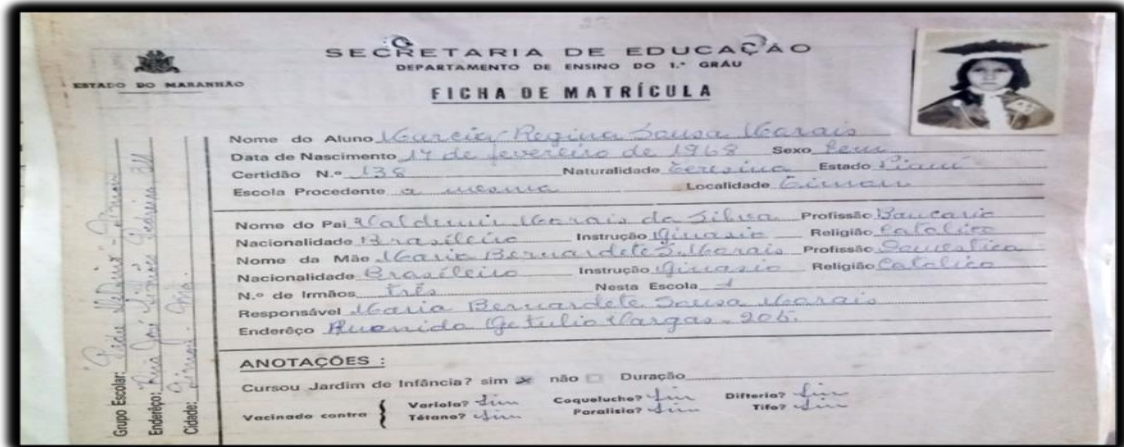 SECRETARIA DE EDUCAÇÃO
DEPARTAMENTO DE ENSINO DO 1.º GRÁU
ESTADO DO MARANHÃO
FICHA DE MATRÍCULA
Nome do Aluno Marcia Regina Sousa Morais
Data de Nascimento 17 de fevereiro de 1968 Sexo Fem
Certidão N.º 138 Naturalidade Teresina Estado Piauí
Escola Procedente a mesma Localidade Timon
Nome do Pai Valdemir Morais da Silva Profissão Bancario
Nacionalidade Brasileiro Instrução Ginasio Religião Catolico
Nome da Mãe Maria Bernardete S. Morais Profissão Domestica
Nacionalidade Brasileiro Instrução Ginasio Religião Catolica
N.º de Irmãos três Nesta Escola 1
Responsável Maria Bernardete Sousa Morais
Enderêço Avenida Getulio Vargas - 205.
ANOTAÇÕES :
Cursou Jardim de Infância? sim x não Duração
Vacinado contra
Varíola? Sim Coqueluche? Sim Difteria? Sim
Tétano? Sim Paralisia? Sim Tifo? Sim
Grupo Escolar:
Enderêço: Rua José Simões Pedreira
Cidade: Timon